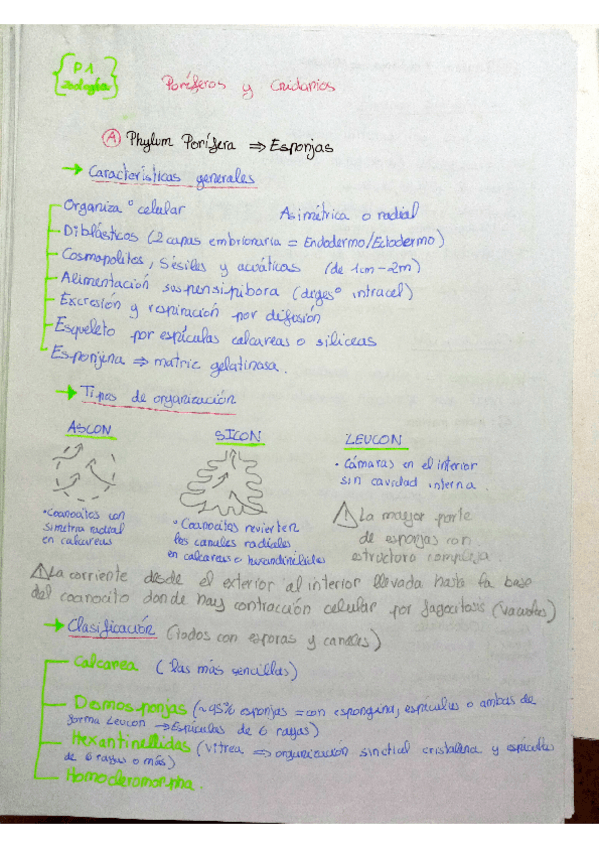 P1
Zoología
Poríferos y Cnidarios
A Phylum Porífera ⇒ Esponjas
→ Características generales
Organizaº celular Asimétrica o radial
Diblásticos (2 capas embrionaria = Endodermo/Ectodermo)
Cosmopolitos, Sésiles y acuáticas (de 1cm-2m)
Alimentación suspensipibora (digesº intracel)
Excresión y respiración por difusión
Esqueleto por espículas calcareas o siliceas
Esponjina ⇒ matriz gelatinosa.
→ Tipos de organización
ASCON SICON LEUCON
• Coanocitos con
simetria radial
en calcareas
• Coanocitos revierten
los canales radiales
en calcareas o hexandinelidos
• Cámaras en el interior
sin cavidad interna
⚠ La mayor parte
de esponjas con
estructura compleja
⚠ La corriente desde el exterior al interior llevada hasta la base
del coanocito donde hay contracción celular por fagocitosis (vacuolas)
→ Clasificación (todos con esporas y canales)
Calcarea (las más sencillas)
Desmosponjas (~95% esponjas = con espongina, espículas o ambas de
forma Leucon → Espículas de 6 rayas)
Hexantinellidas (Vitrea ⇒ organización sinctial cristalena y espículas
de 6 rayas o más)
Homoderomorpha.